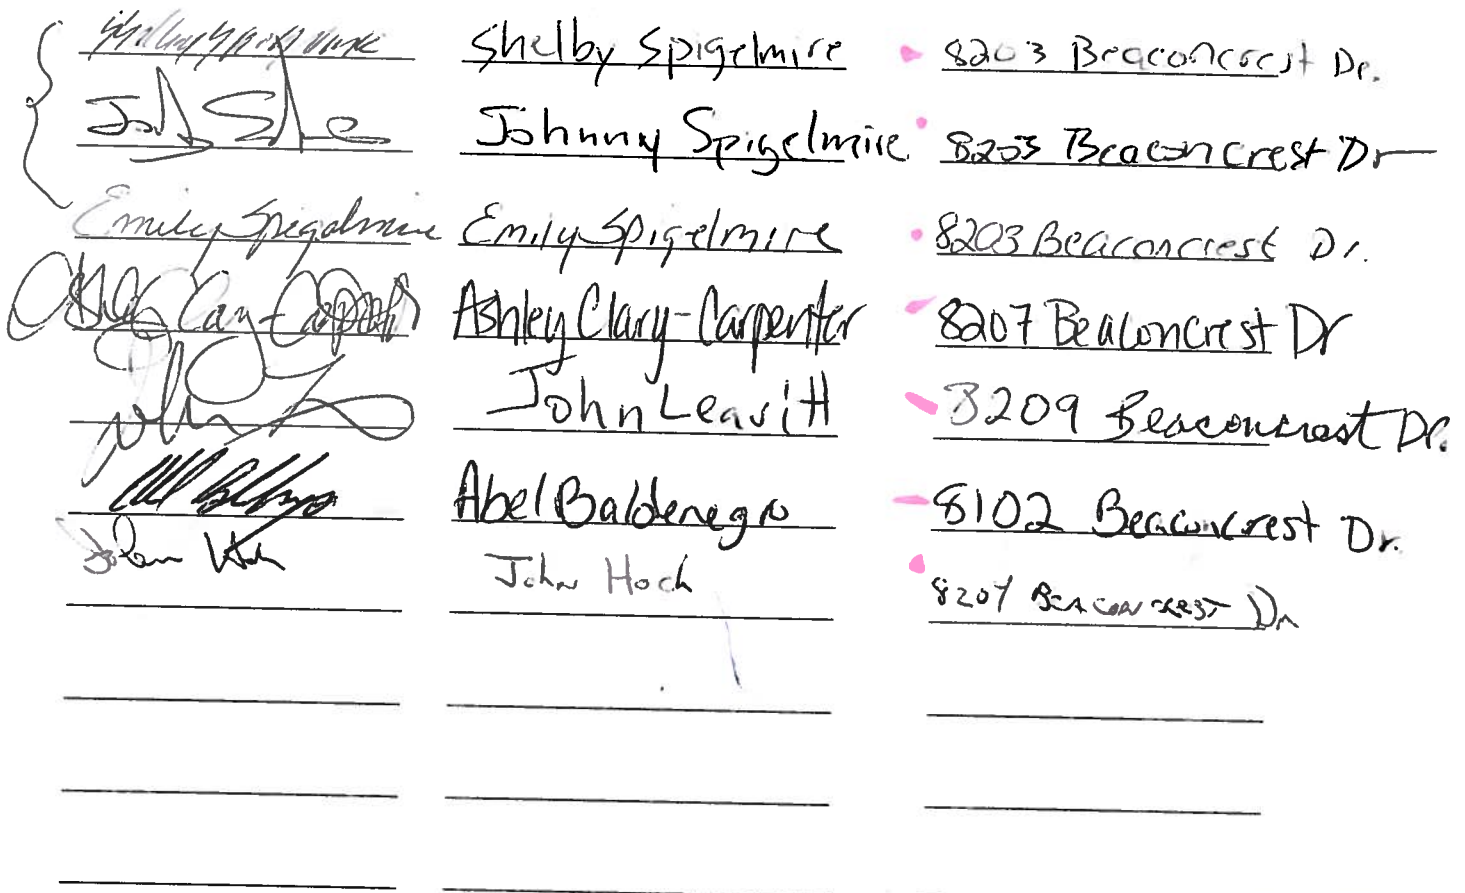 Shelby Spigelmire Shelby Spigelmire 8203 Beaconcrest Dr.
Johnny Spigelmire 8203 Beaconcrest Dr
Emily Spigelmire Emily Spigelmire 8203 Beaconcrest Dr.
Ashley Clary-Carpenter Ashley Clary-Carpenter 8207 Beaconcrest Dr
John Leavitt 8209 Beaconcrest Dr.
Abel Baldenegro 8102 Beaconcrest Dr.
John Hoch John Hoch Beaconcrest Dr